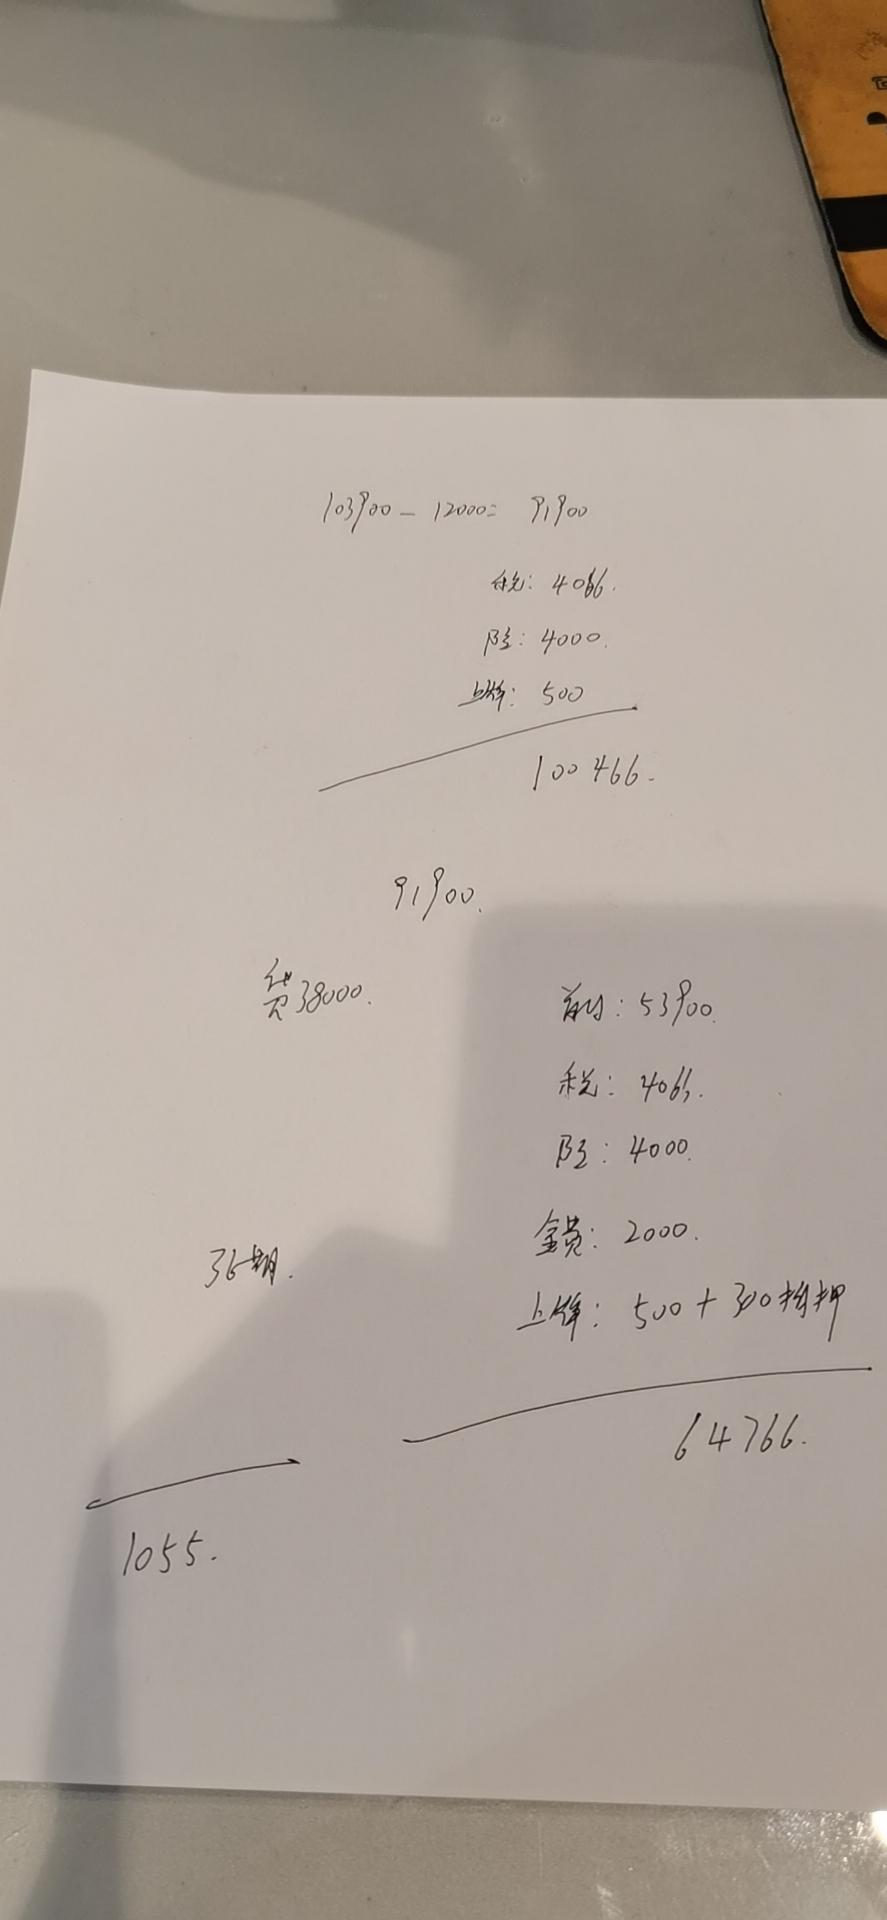 103900-12000= 91900
税: 4066.
险: 4000.
上牌: 500
100466.
91900.
贷38000.
首付: 53900.
税: 4066.
险: 4000.
金费: 2000.
36期.
上牌: 500+300抵押
64766.
1055.